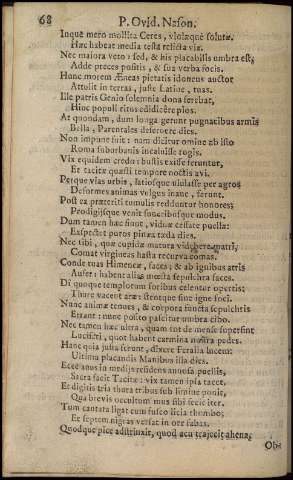 68 P. Ovid. Nason.
Inque mero mollita Ceres, violæque solutæ.
Hæc habeat media testa relicta via.
Nec maiora veto: sed, & his placabilis umbra est;
Adde preces positis, & sua verba focis.
Hunc morem Æneas pietatis idoneus auctor
Attulit in terras, juste Latine, tuas.
Ille patris Genio solemnia dona ferebat,
Hinc populi ritus edidicêre pios.
At quondam, dum longa gerunt pugnacibus armis
Bella, Parentales deseruere dies.
Non impune fuit: nam dicitur omine ab isto
Roma suburbanis incaluisse rogis.
Vix equidem credo: bustis exisse feruntur,
Et tacitæ questi tempore noctis avi.
Perque vias urbis, latiosque ululasse per agros
Deformes animas vulgus inane, ferunt.
Post ea præteriti tumulis redduntur honores;
Prodigiisque venit funeribusque modus.
Dum tamen hæc fiunt, viduæ cessate puellæ:
Exspectet puros pinea tæda dies.
Nec tibi, quæ cupidæ matura videbere matri,
Comat virgineas hasta recurva comas.
Conde tuas Himenæe, faces, & ab ignibus atris
Aufer: habent alias mœsta sepulchra faces.
Di quoque templorum foribus celentur opertis:
Thure vacent aræ: stentque sine igne foci.
Nunc animæ tenues, & corpora functa sepulchris
Errant: nunc posito pascitur umbra cibo.
Nec tamen hæc ultra, quam tot de mense supersint
Luciferi, quot habent carmina nostra pedes.
Hanc quia justa ferunt, dixere Feralia lucem:
Ultima placandis Manibus illa dies.
Ecce anus in mediis residens annosa puellis,
Sacra facit Tacitæ: vix tamen ipsa tacet.
Et digitis tria thura tribus sub limine ponit,
Qua brevis occultum mus sibi fecit iter.
Tum cantata ligat cum fusco licia rhombo;
Et septem nigras versat in ore fabas.
Quodque pice adstrinxit, quod acu trajecit ahena,
Obs